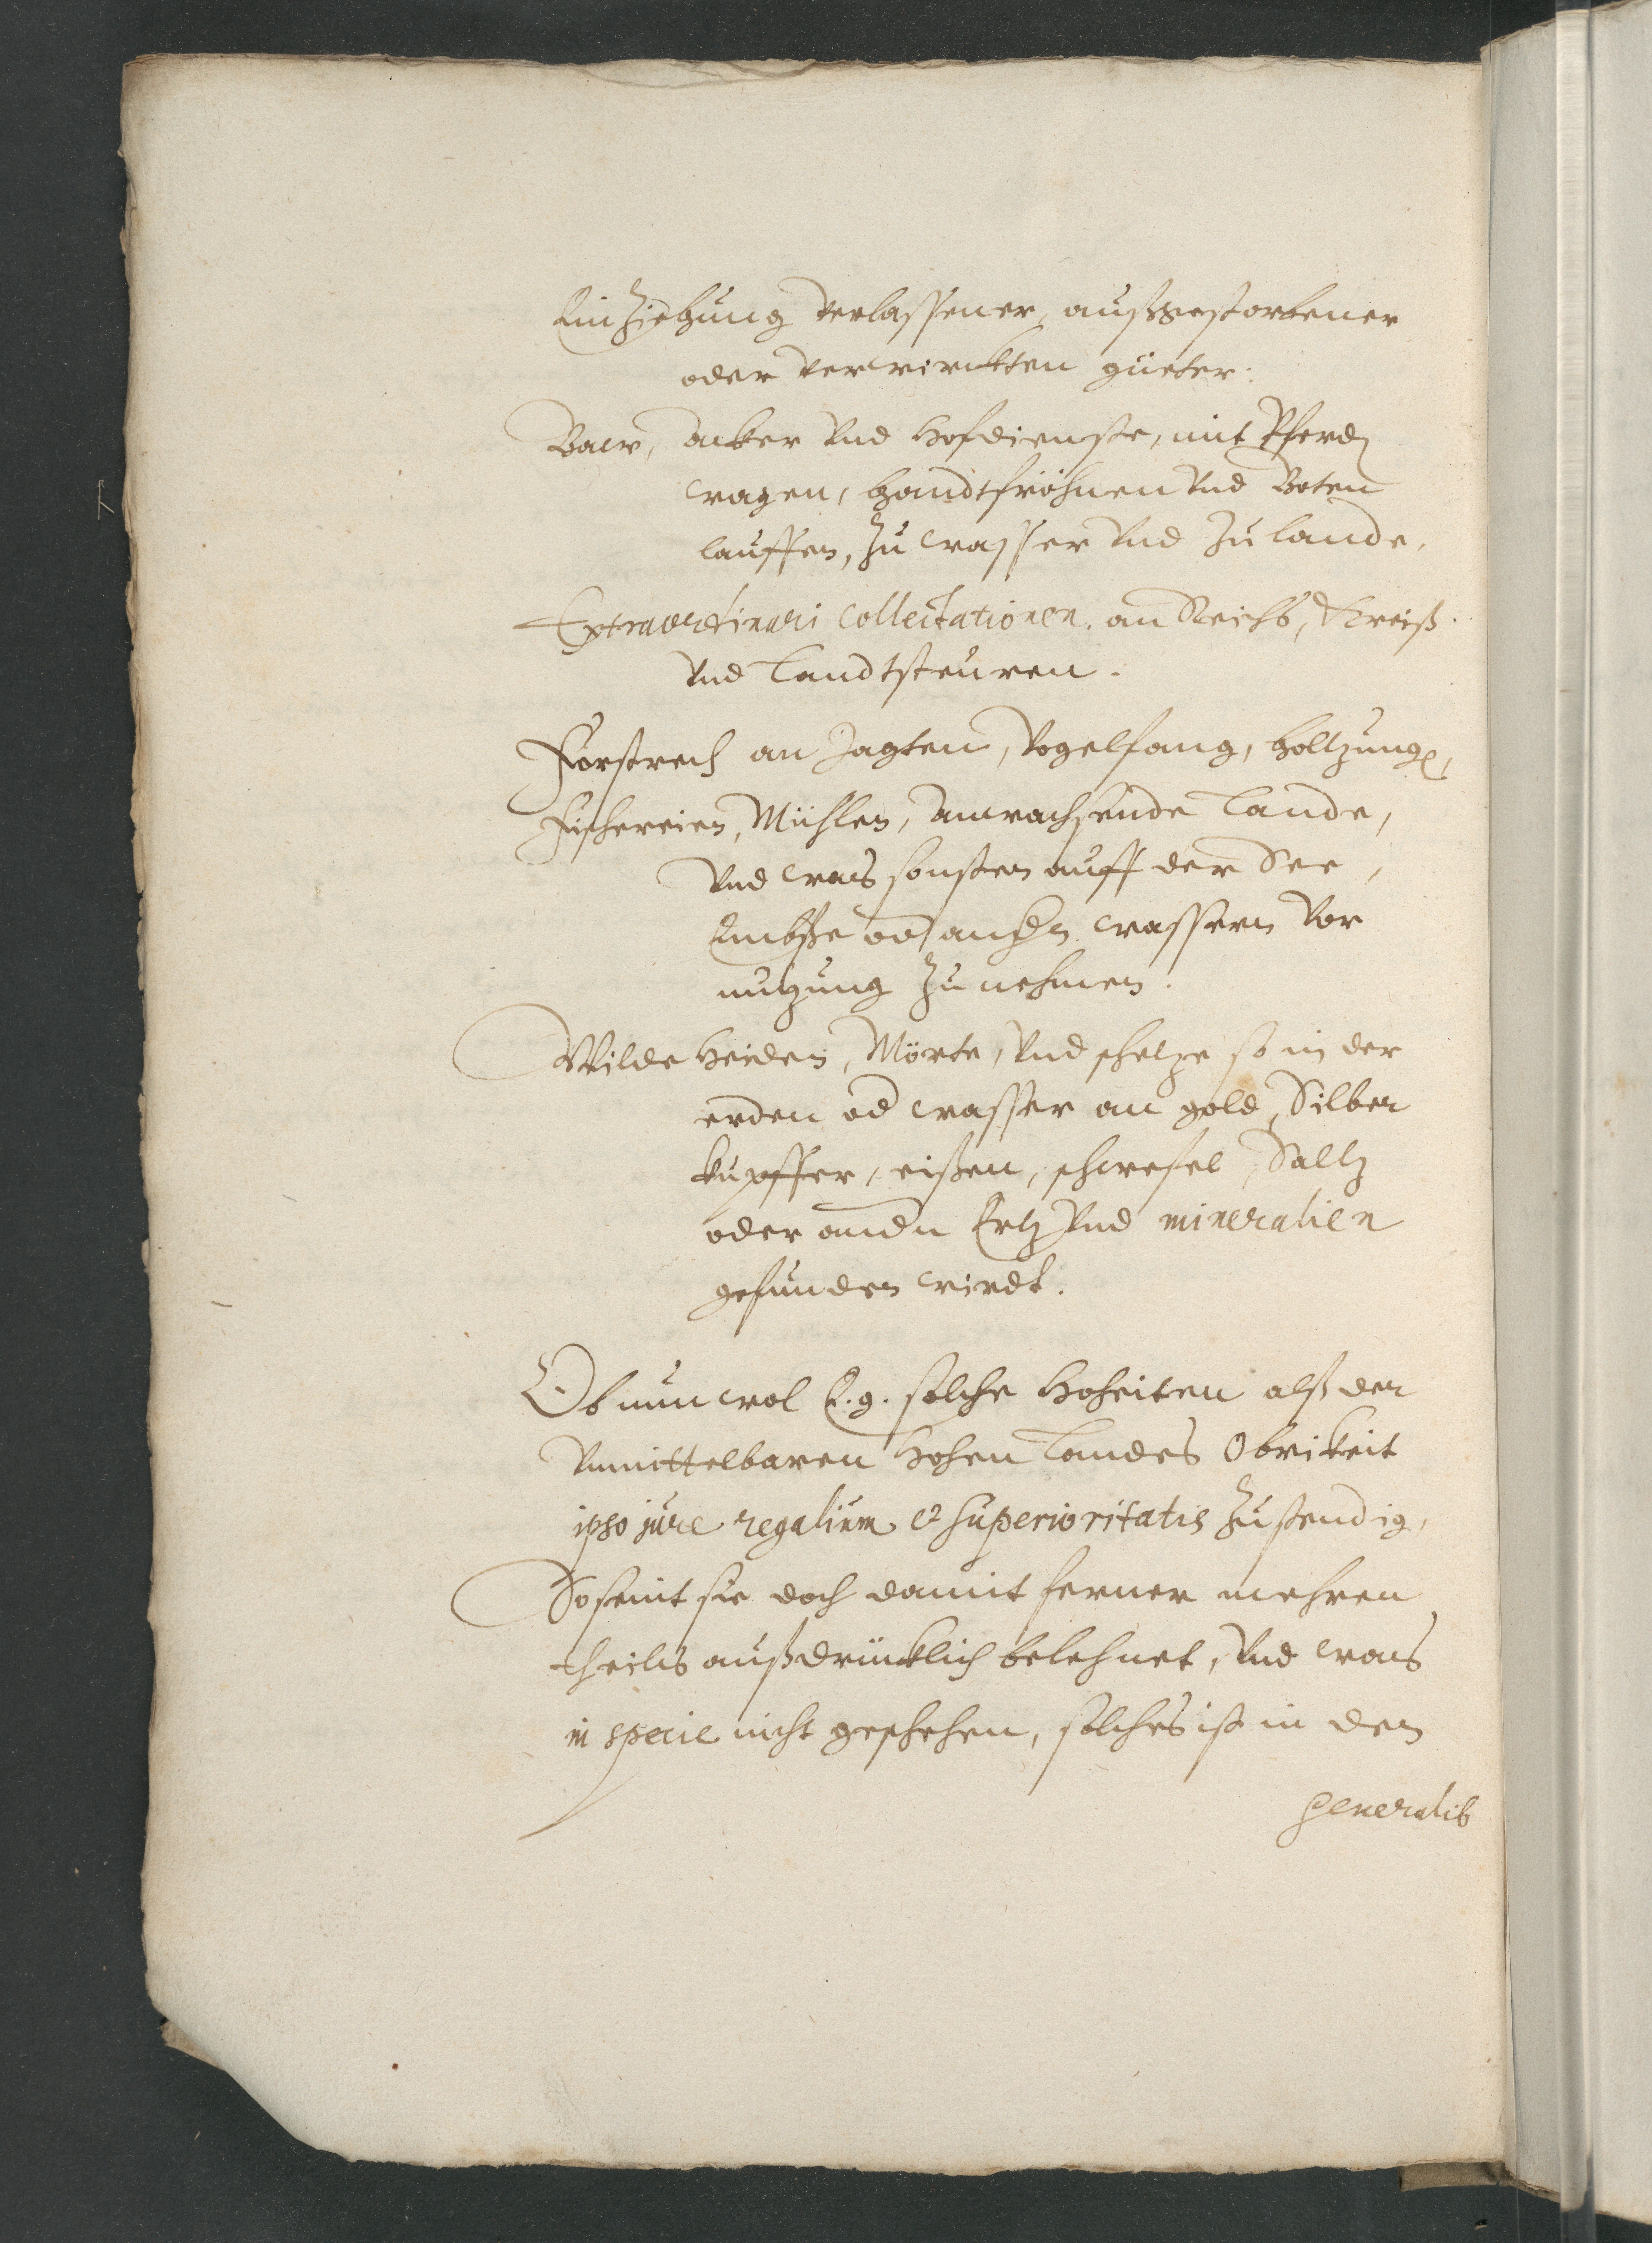 Einziehung verlassener, außgestorbener
oder verwirckten güeter:
Baw, acker vnd Hofdienste, mit Pferd
wagen, handtfröhnen vnd Boten
lauffen, zu wasser vnd zu lande,
Extraordinari Collectationen, an Reichs, Kreiß
vnd Landtsteuren.
Forstrech an Jagten, Vogelfang, holtzung,
Fischereien, Mühlen, anwachsende Lande,
vnd was sonsten auff der See,
od andern wassern vor
nutzung zu nehmen.
Wilde Heiden, Mörte, vnd schetze so in der
erden od wasser an gold, Silber
kupffer, eißen, schwefel, Saltz
oder andern Ertz vnd mineralien
gefunden wirdt.
Ob nun wol E. g. solche Hoheiten alß der
vnmittelbaren Hohen Landes Obrikeit
ipso jure regalium et superioritatis zustendig,
So seint sie doch damit ferner mehren
theils außdrücklich belehnet, vnd was
in specie nicht geschehen, solches ist in den
generalib